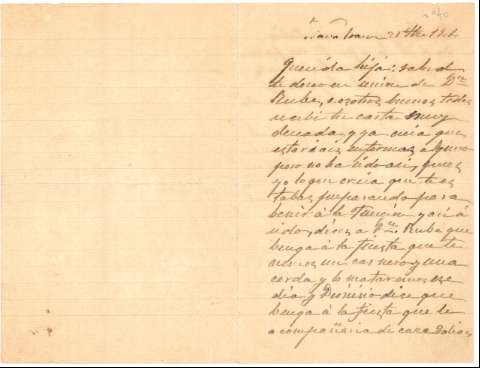 Querida hija: salud
te deseo en union de Dn
Rube, nosotros buenos todos
recibi tu carta muy
deceada, y ya creia que
estabais enfermos alguno
pero no ha sido asi, pues
yo lo que creia que te es
tabas preparando para
benir á la funcion y asi á
sido, dices a Dn. Rube que
benga á la fiesta que te
nemos un carnero y una
cerda y lo mataremos ese
dia y Dionisio dice que
benga á la fiesta que le
acompañaria de caza